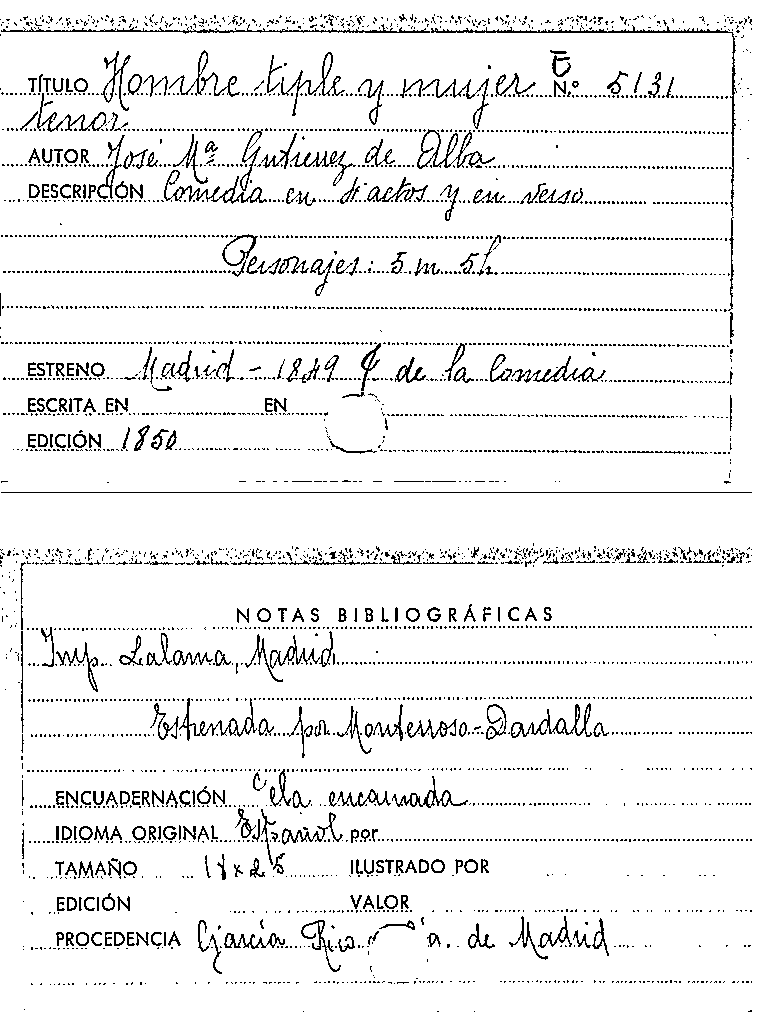 TÍTULO Hombre tiple y mujer N.º 5131
tenor
AUTOR José Mª Gutierrez de Alba
DESCRIPCIÓN Comedia en actos y en verso
Personajes: 5 m 5 h
ESTRENO Madrid - 1849 de la Comedia
ESCRITA EN EN
EDICIÓN 1850
NOTAS BIBLIOGRÁFICAS
Imp. Lalama, Madrid
Estrenada por Monterroso-Dardalla
ENCUADERNACIÓN ela encarnada
IDIOMA ORIGINAL Español por
TAMAÑO ILUSTRADO POR
EDICIÓN VALOR
PROCEDENCIA García Rico a. de Madrid